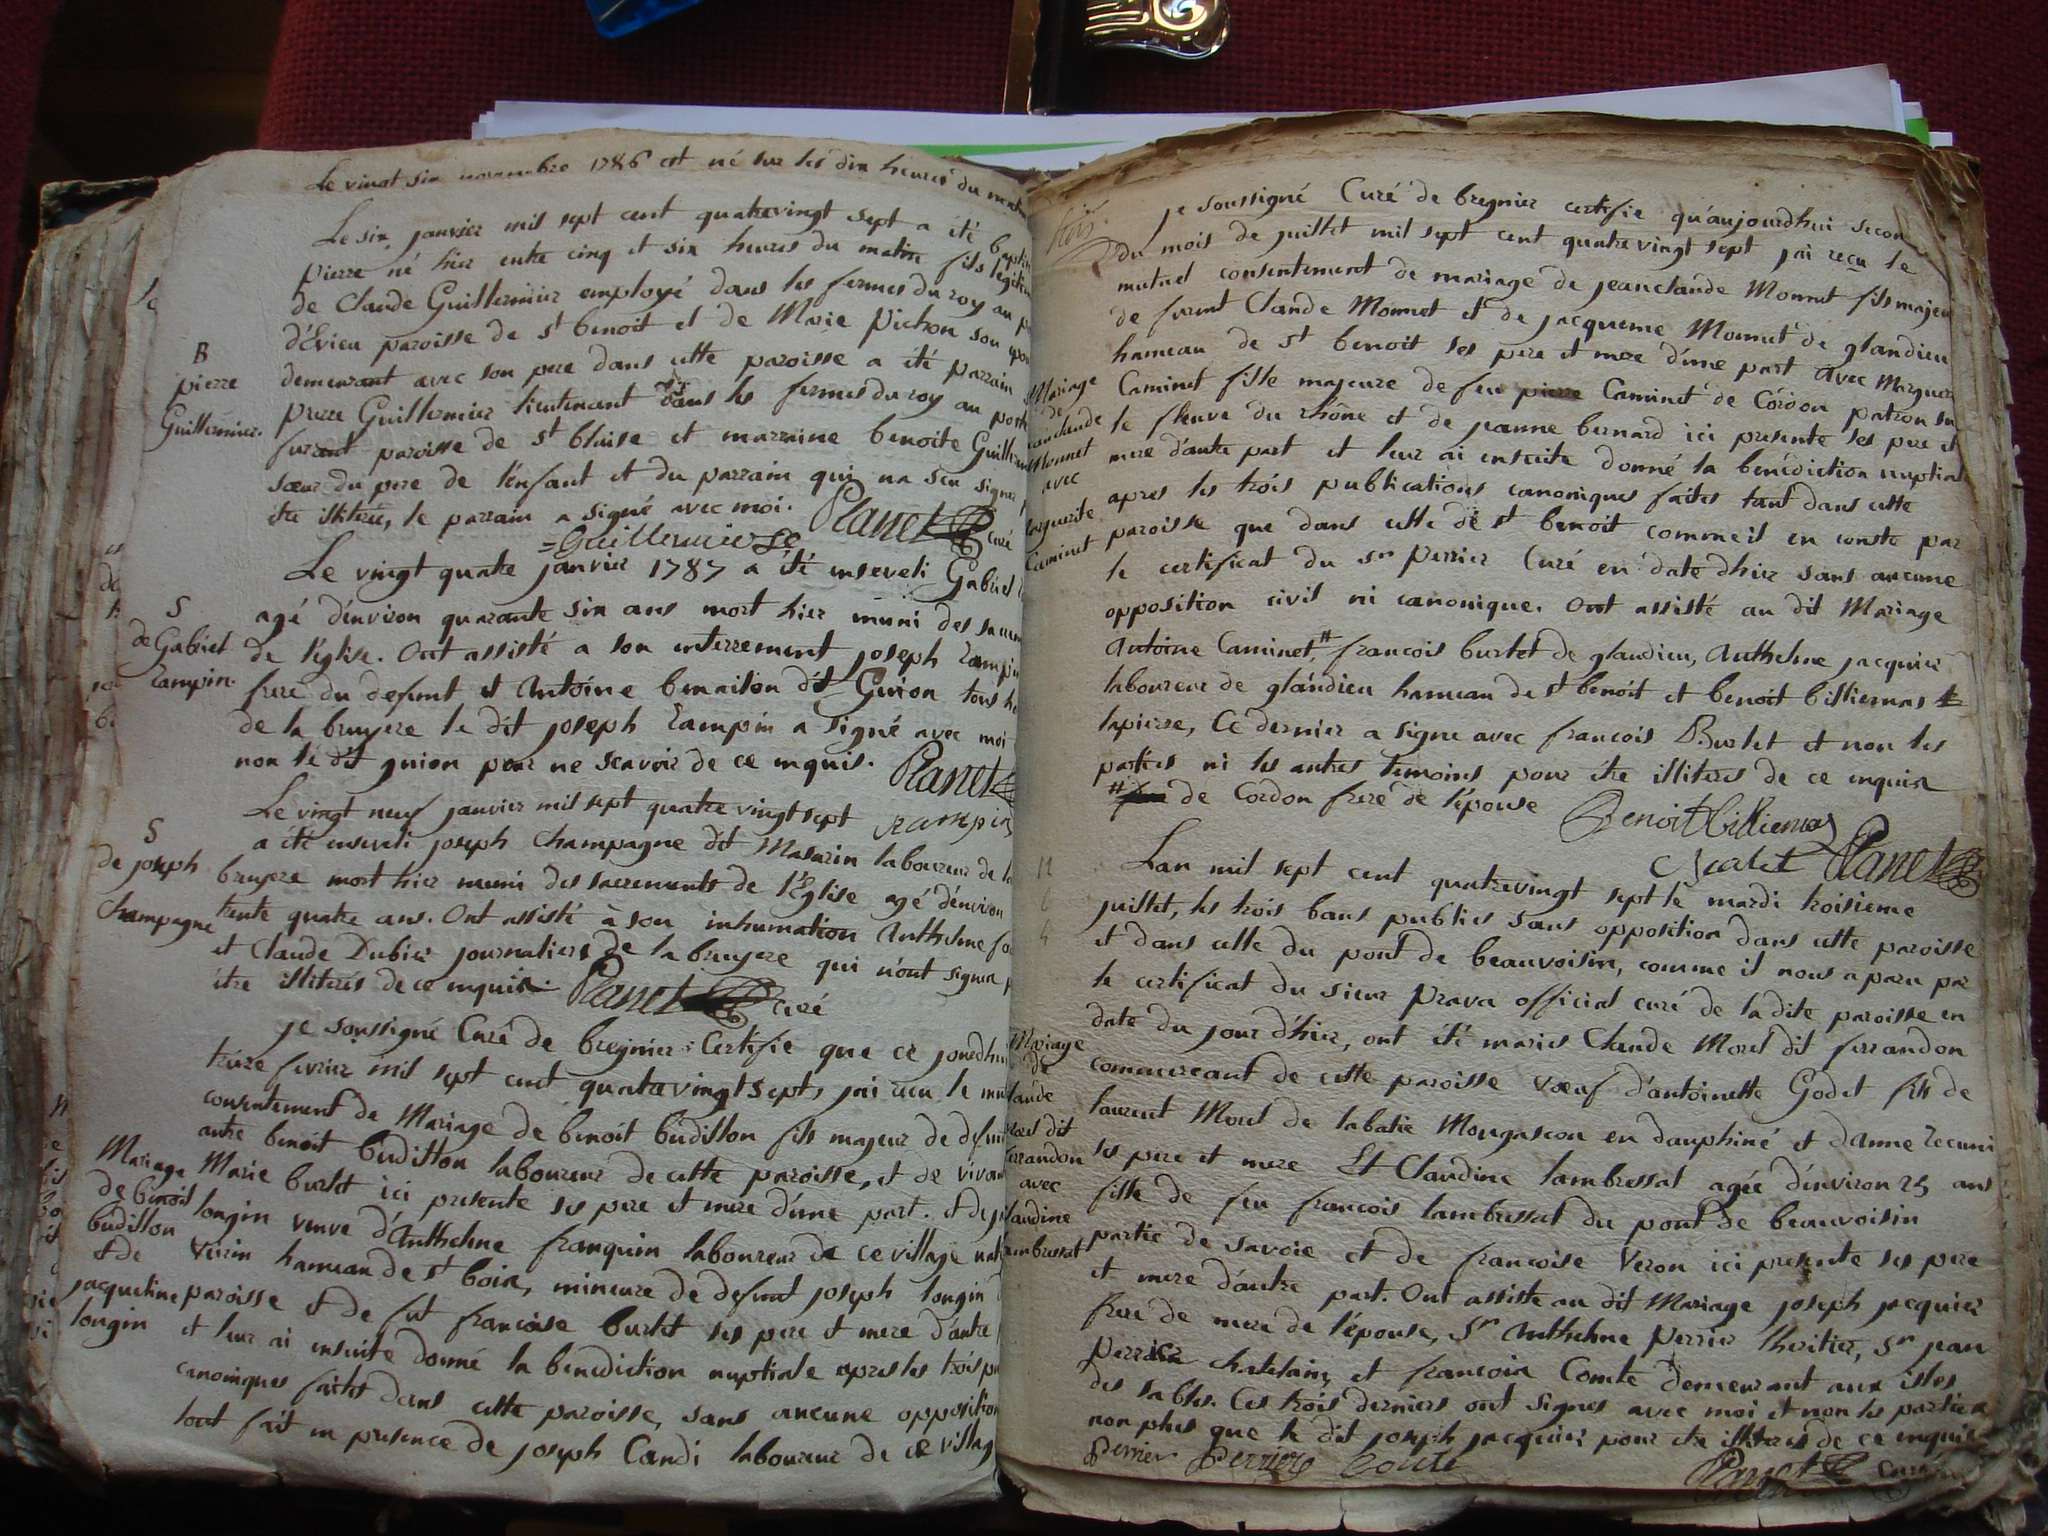 Le vingt six novembre 1786 est né sur les dix heures du matin
Le six janvier mil sept cent quatrevingt sept a été
pierre né hier entre cinq et six heures du matin fils
de Claude Guillermier employé dans les fermes du roy au
d'Evieu paroisse de st benoit et de Marie Pichon son
demeurant avec son pere dans cette paroisse a été parrain
B
pierre
Guillermier.
pierre Guillermier lieutenant dans les fermes du roy au
paroisse de st blaise et marraine benoite
sœur du pere de l'enfant et du parrain qui na seu signer
etre illiteré, le parrain a signé avec moi. Planet curé
Guillermier
Le vingt quatre janvier 1787 a été enseveli Gabriel
S
de Gabriel
Rampin.
agé d'environ quarante six ans mort hier muni des
de l'eglise. Ont assisté a son enterrement joseph
frere du defunt et Antoine benaiton dit Guion tous
de la bruyere le dit joseph Rampin a signé avec moi
non le dit guion pour ne scavoir de ce enquis. Planet
Rampin
Le vingt neuf janvier mil sept quatre vingt sept
S
de joseph
Champagne
a été enseveli joseph Champagne dit Masurin laboureur de
bruyere mort hier muni des sacrements de l'Eglise agé d'environ
trente quatre ans. Ont assisté à son inhumation Anthelme
et Claude Dubier journaliers de la bruyere qui n'ont signer
être illiterés de ce enquis. Planet curé
je soussigné Curé de bregnier Certifie que ce
treize fevrier mil sept cent quatrevingt sept, jai recu le
consentement de Mariage de benoit budillon fils majeur de
autre benoit budillon laboureur de cette paroisse, et de
Mariage
de benoit
budillon
et de
jacqueline
longin
Marie burlet ici presente ses pere et mere d'une part. et de
longin veuve d'Anthelme franquin laboureur de ce village
Veirin hameau de st boin, mineure de defunt joseph longin
paroisse et de fut francoise burlet ses pere et mere d'autre
et leur ai ensuite donné la benediction nuptiale apres les trois
canoniques faites dans cette paroisse, sans aucune opposition
tout fait en presence de joseph Candi laboureur de ce
trois
je soussigné Curé de bregnier certifie qu'aujourdhui
du mois de juillet mil sept cent quatre vingt sept jai reçu le
mutuel consentement de mariage de jeanclaude Monnet fils
de furent Claude Monnet et de jacqueme Monnet de glandieu
hameau de st benoit ses pere et mere d'une part avec
Mariage
de
Monnet
avec
Caminet
Caminet fille majeure de feu pierre Caminet de Cordon patron sur
le fleuve du rhône et de jeanne bernard ici presente ses pere et
mere d'autre part et leur ai ensuite donné la benediction
apres les trois publications canoniques faites tant dans cette
paroisse que dans celle de st benoit comme il en conste par
le certificat du sr perrier Curé en date dhier sans aucune
opposition civil ni canonique. Ont assisté au dit Mariage
Antoine Caminet, # francois burlet de glandieu, Anthelme jacquier
laboureur de glandieu hameau de st benoit et benoit billiemas
lapierre, Ce dernier a signe avec francois Burlet et non les
parties ni les autres temoins pour être illiteres de ce enquis
# de Cordon frere de l'épouse Benoit billiemas
Burlet Planet
Lan mil sept cent quatrevingt sept le mardi troisieme
juillet, les trois bans publies sans opposition dans cette paroisse
et dans celle du pont de beauvoisin, comme il nous a paru par
le certificat du sieur Prava official curé de la dite paroisse en
date du jour d'hier, ont été mariés Claude Morel dit ferrandon
Mariage
de
avec
commercant de cette paroisse vœuf d'antoinette Godet fils de
laurent Morel de labatie Mongascon en dauphiné et danne
ses pere et mere Et Claudine lambressat agée d'environ 25 ans
fille de feu francois lambressat du pont de beauvoisin
partie de savoie et de francoise Veron ici presente ses pere
et mere d'autre part. Ont assisté au dit Mariage joseph jacquier
frere de mere de l'épouse, Sr Anthelme perrier lheritier, Sr jean
perrier chatelain, et francois Comte demeurant aux isles
des sables. Ces trois derniers ont signes avec moi et non les parties
non plus que le dit joseph jacquier pour etre illiteres de ce enquis
Perrier Perrier Comte Planet curé